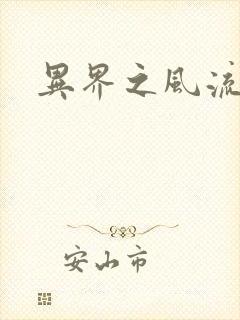 異界之風流
安山市